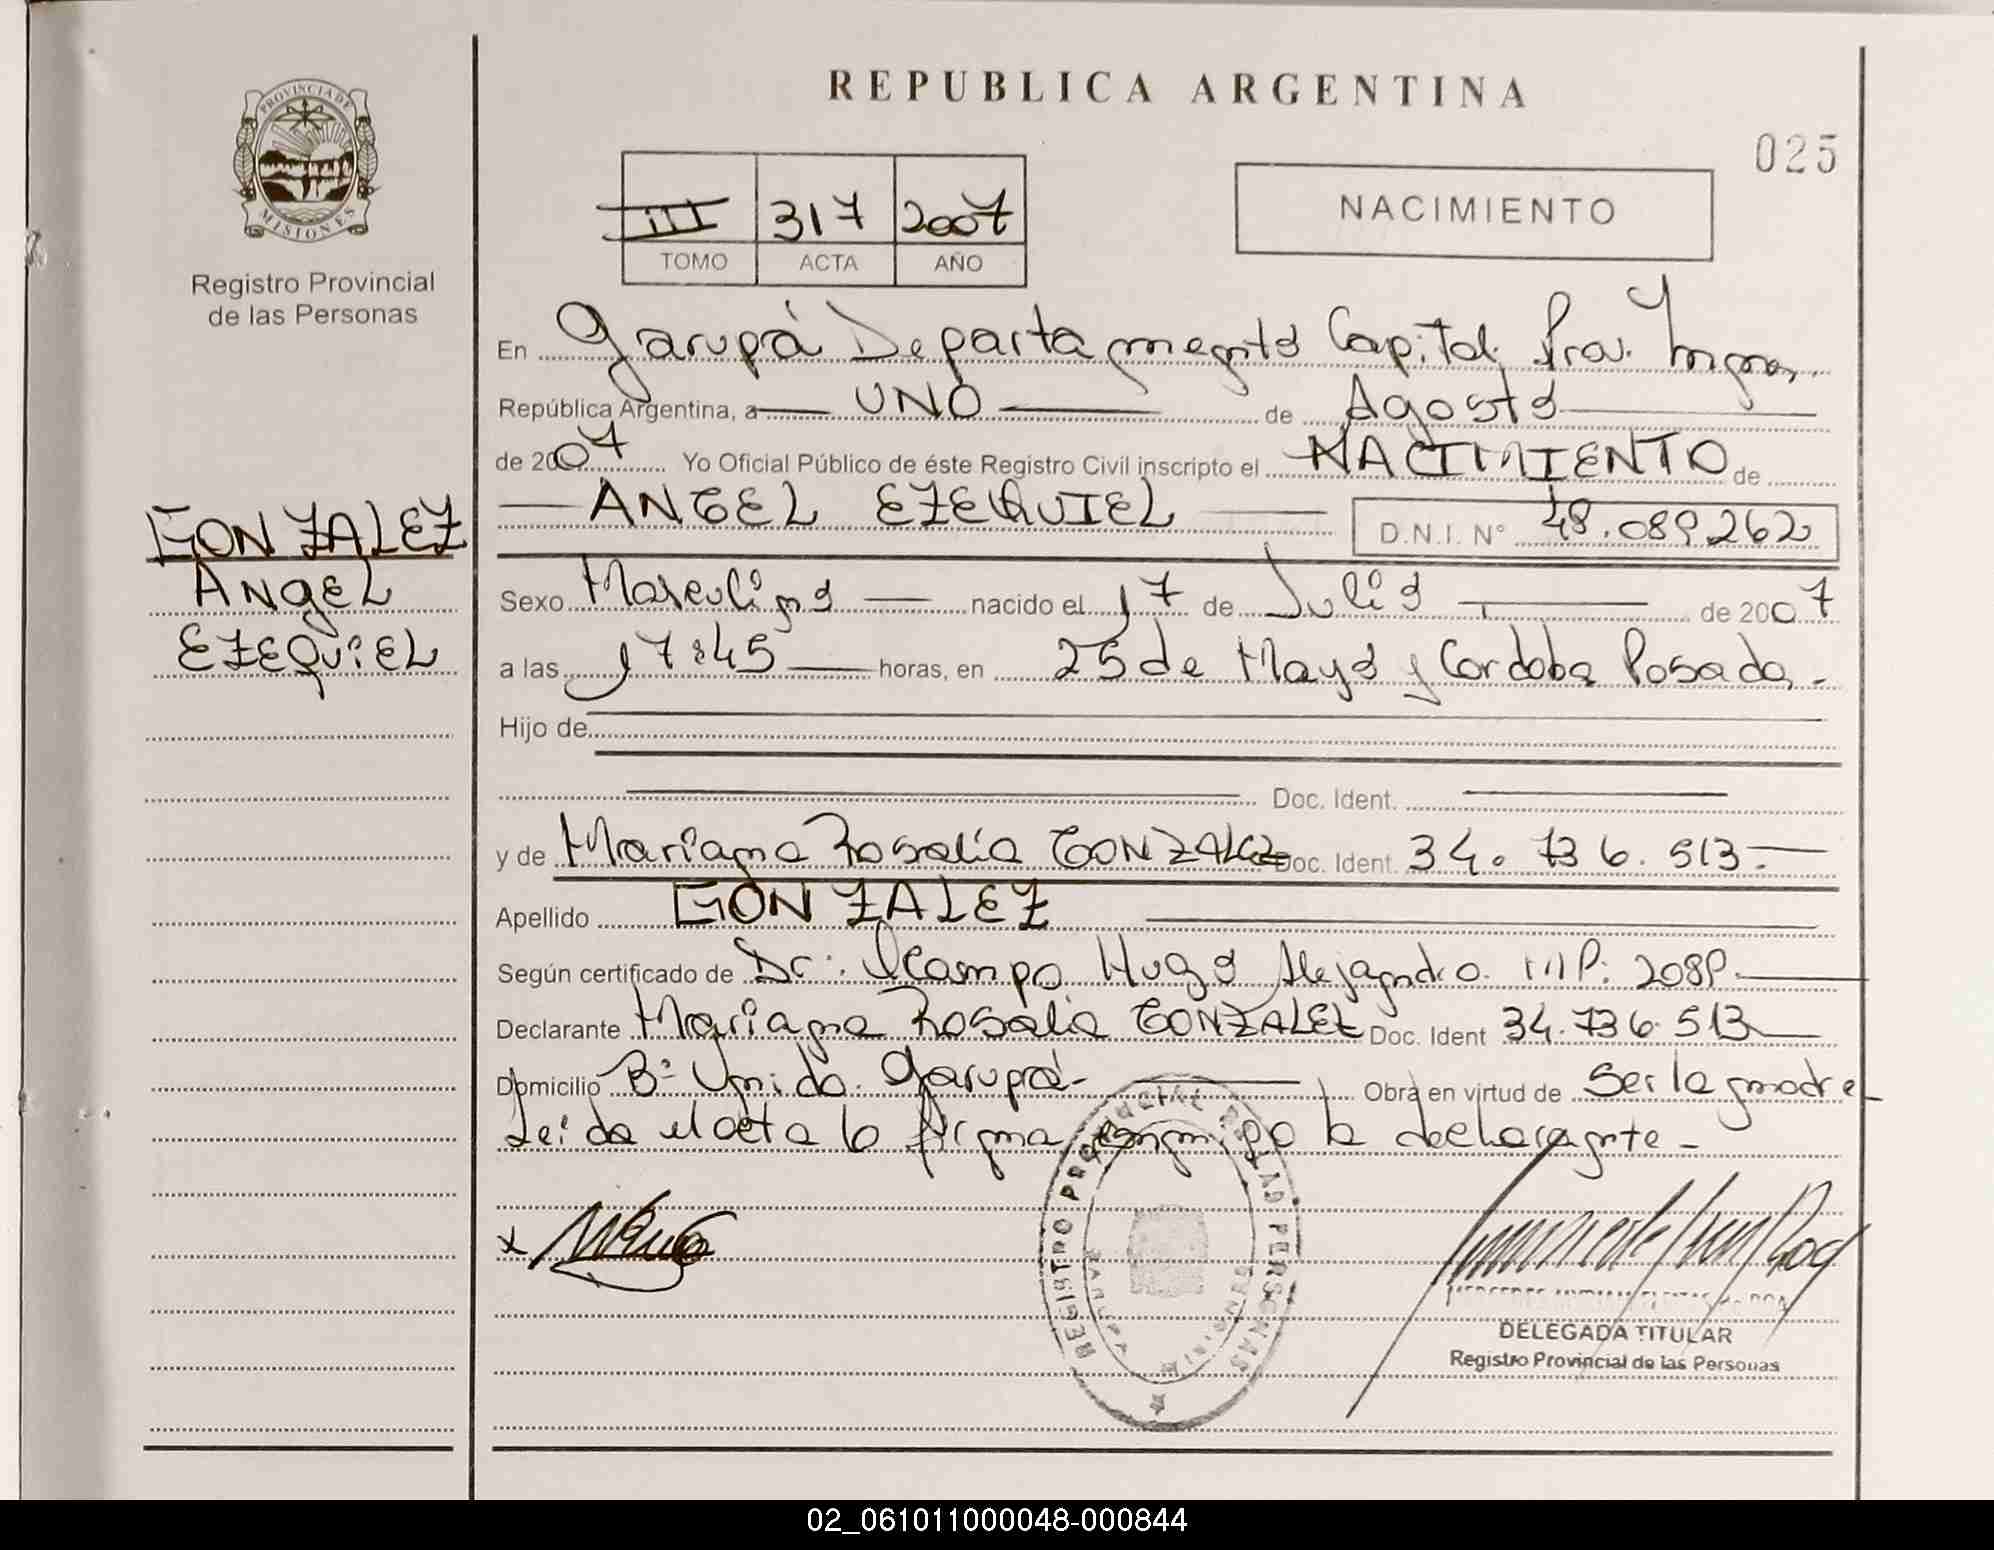 REPUBLICA ARGENTINA
025
PROVINCIA DE MISIONES
Registro Provincial
de las Personas
III 317 2007
TOMO ACTA AÑO
NACIMIENTO
En Garupá Departamento Capital Prov. Mnes,
República Argentina, a UNO de Agosto
de 2007 Yo Oficial Público de éste Registro Civil inscripto el NACIMIENTO de
ANGEL EZEQUIEL D.N.I. N° 48.089.262
GONZALEZ
ANgEL
EZEQUiEL
Sexo Masculino nacido el 17 de Julio de 2007
a las 17:45 horas, en 25 de Mayo y Cordoba Posadas -
Hijo de
Doc. Ident.
y de Mariana Rosalía GONZALEZ Doc. Ident. 34.736.513.-
Apellido GONZALEZ
Según certificado de Dr: Ocampo Hugo Alejandro. MP: 2089.
Declarante Mariana Rosalia GONZALEZ Doc. Ident 34.736.513
Domicilio B° Unido. Garupá- Obra en virtud de Ser la madre
Leida el acta la firma conmigo la declarante -
x
REGISTRO PROVINCIAL DE LAS PERSONAS
GARUPA MISIONES
DELEGADA TITULAR
Registro Provincial de las Personas
02_061011000048-000844